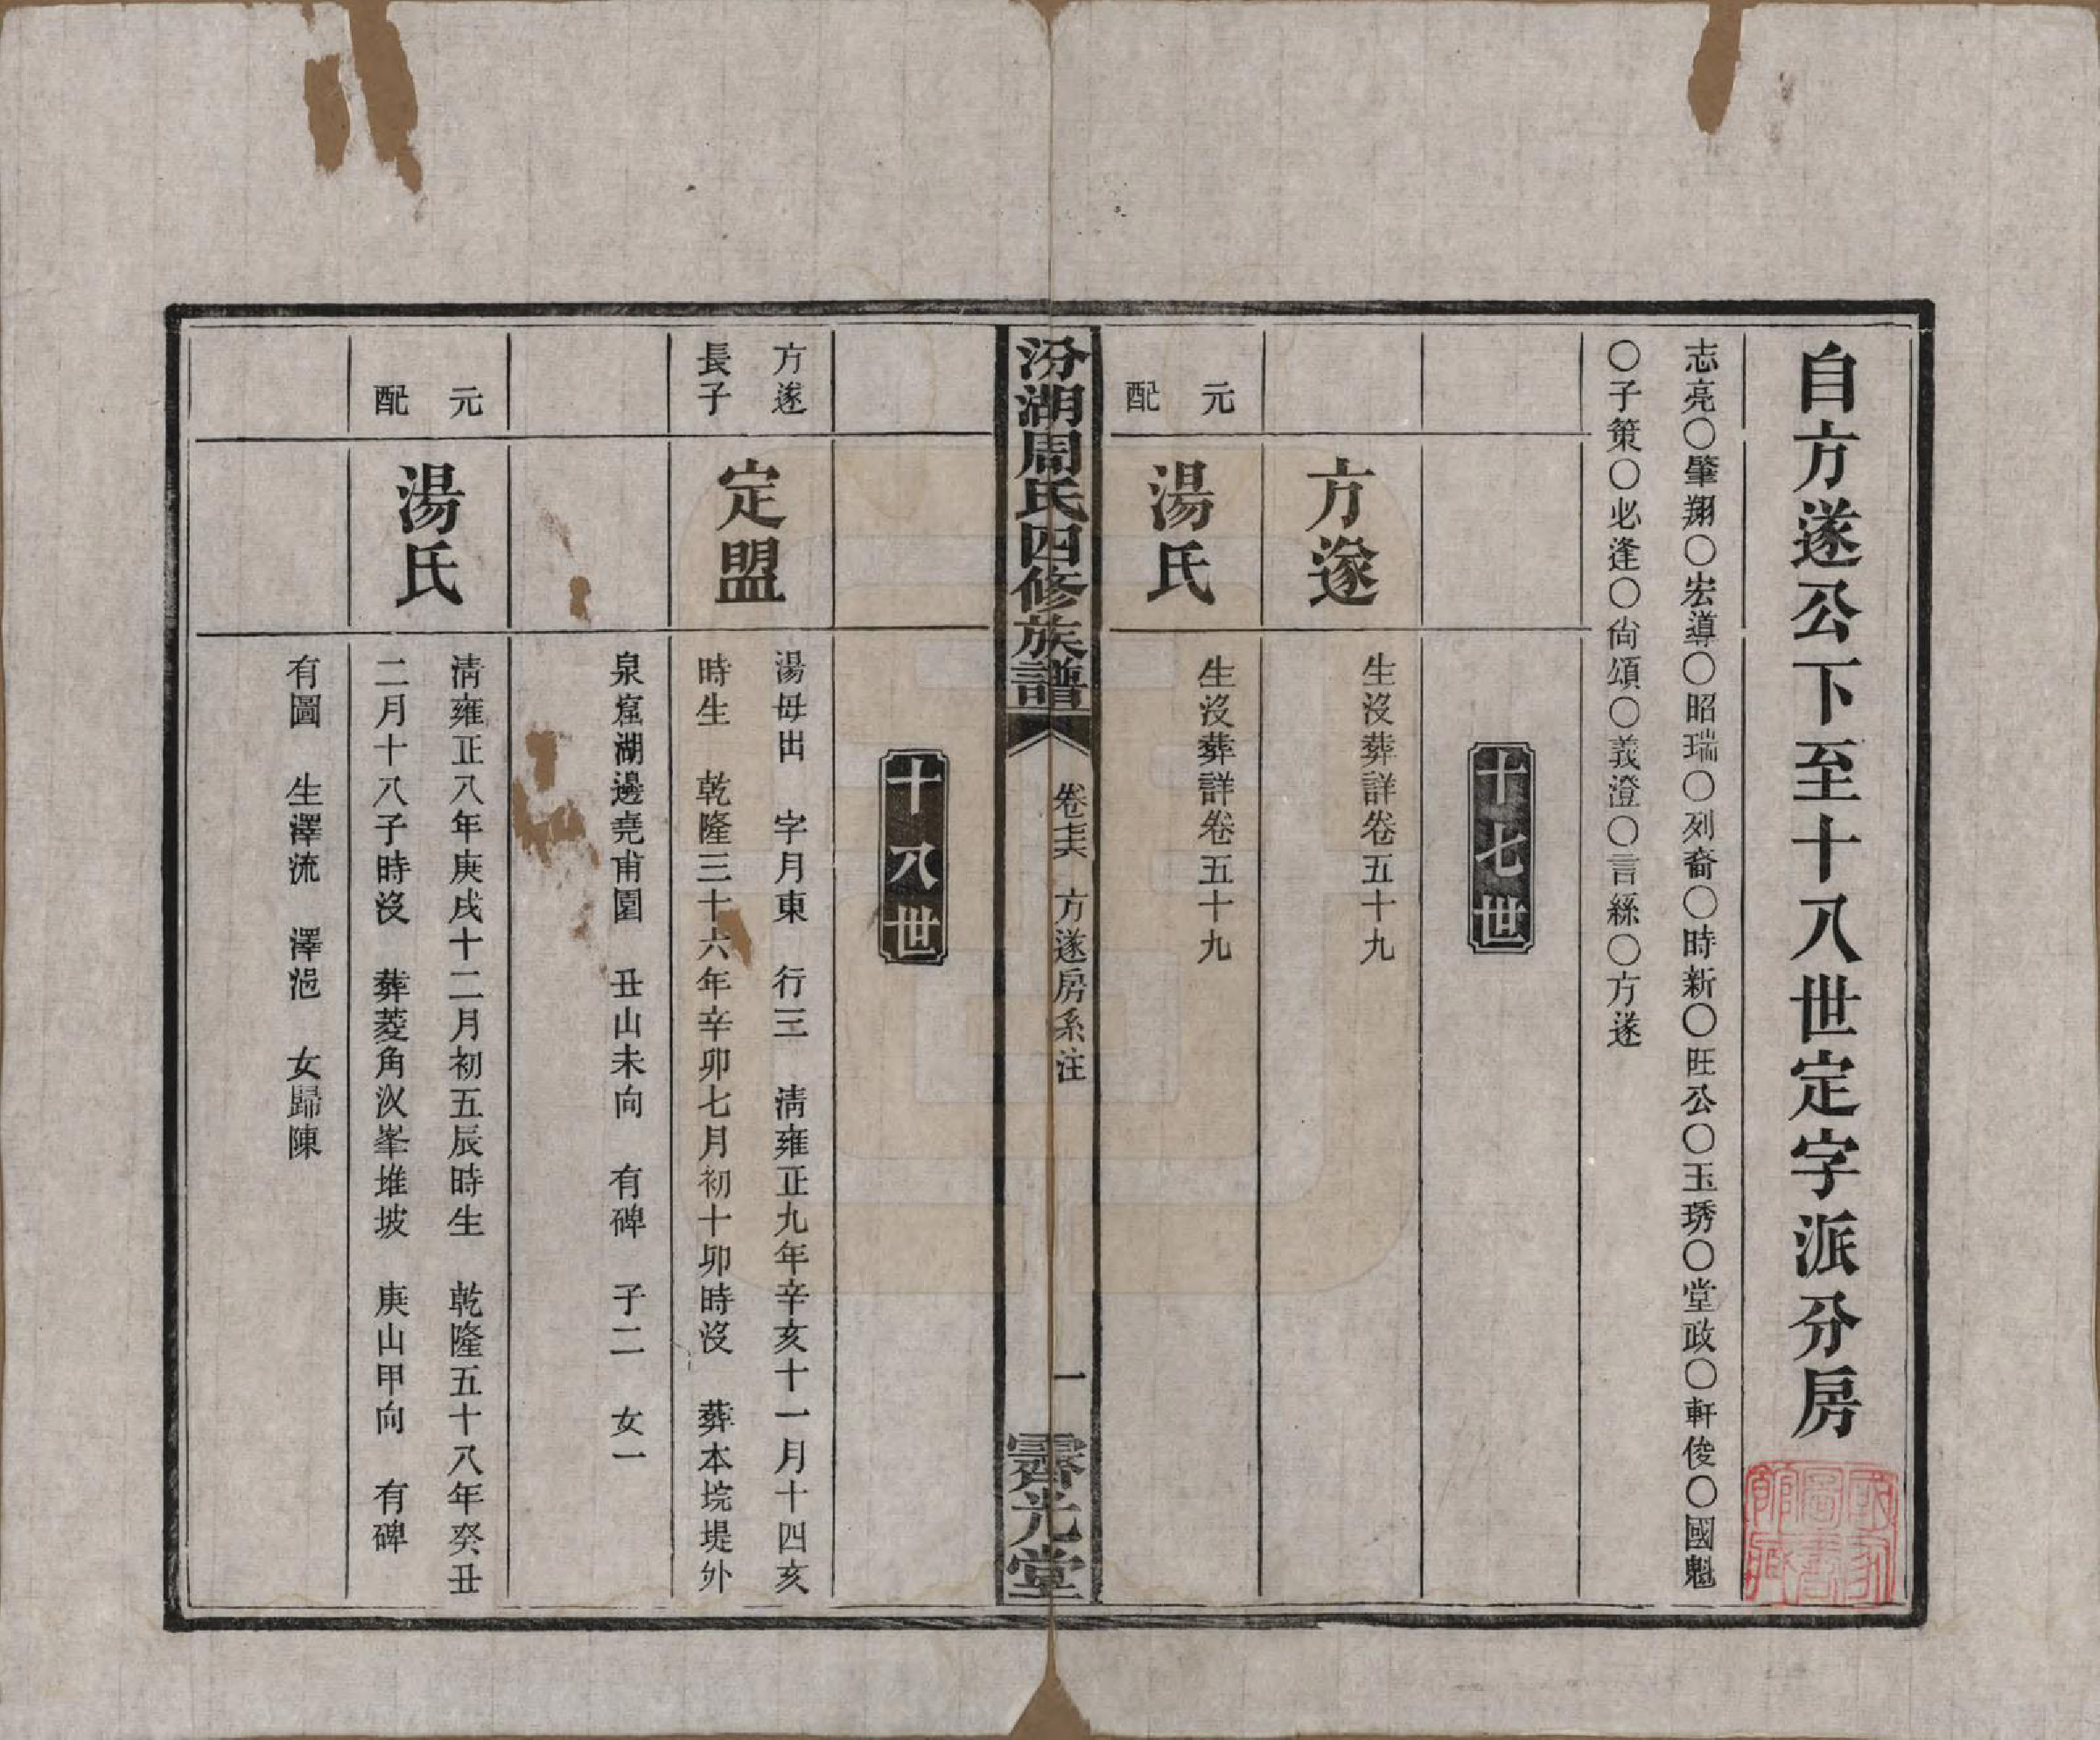 自方遂公下至十八世定字派分房
志亮〇肇翔〇宏導〇昭瑞〇列裔〇時新〇旺公〇玉琇〇堂政〇軒俊〇國魁
〇子策〇必逢〇尙頌〇義澄〇言綵〇方遂
十七世
方遂
生沒葬詳卷五十九
元配
湯氏
生沒葬詳卷五十九
汾湖周氏四修族譜
卷七六
方遂房系注
一
霽光堂
十八世
方遂
長子
定盟
湯母出 字月東 行三 淸雍正九年辛亥十一月十四亥
時生 乾隆三十六年辛卯七月初十卯時沒 葬本垸堤外
泉窟湖邊堯甫園 丑山未向 有碑 子二 女一
元配
湯氏
淸雍正八年庚戌十二月初五辰時生 乾隆五十八年癸丑
二月十八子時沒 葬菱角汊峯堆坡 庚山甲向 有碑
有圖 生澤流 澤浥 女歸陳
國家圖書館藏